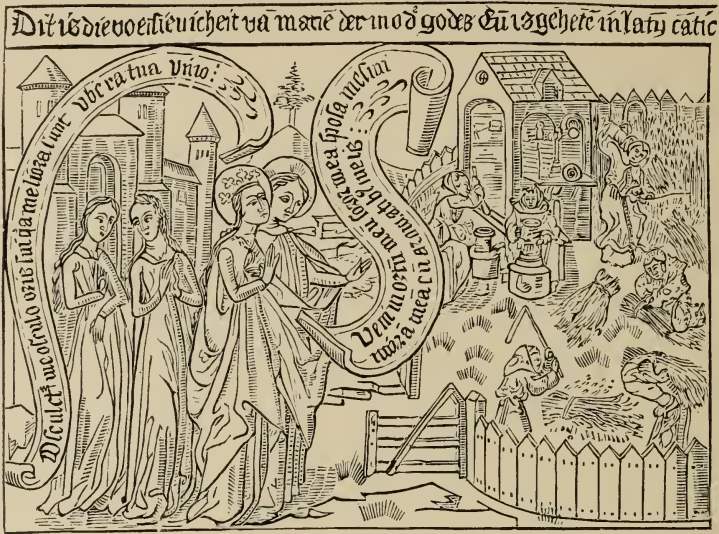 Dit is die voersienicheit vā mariē der mod' godes Eū is gehetē in latȳ cātic
Osculet' me osculo oris sui q̄a meliora sunt vbera tua vino:
Veni in ortū meū soror mea sposa messui
mirrā meā cū aromatib' meis: